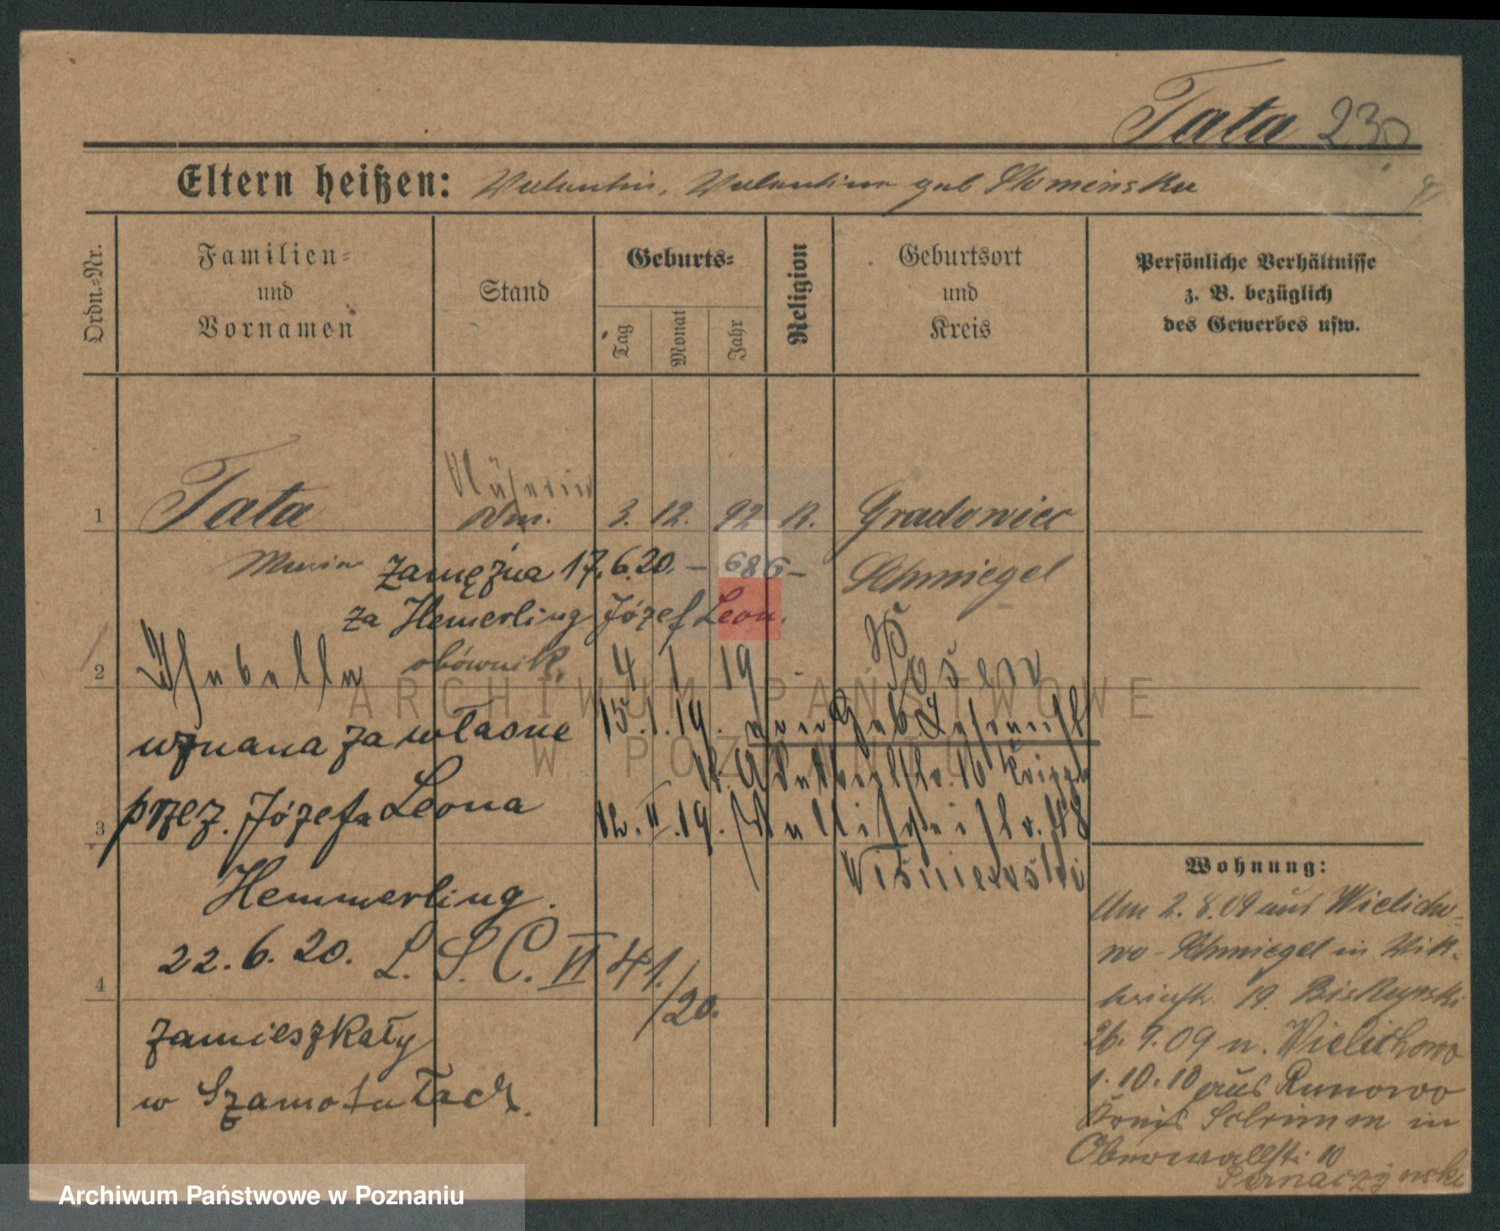 Tata 230
Eltern heißen: Valentin, Valentina geb Slominska
Ordn.-Nr.
Familien-
und
Vornamen
Stand
Geburts-
Tag
Monat
Jahr
Religion
Geburtsort
und
Kreis
Persönliche Verhältnisse
z. B. bezüglich
des Gewerbes usw.
Näherin
1 Tata 3. 12. 92 K. Gradowiec
Maria zamężna 17.6.20. – 686 – Schmiegel
za Hemerling Józef Leon.
obównik.
2 Isabella 4 1 19 - Posen
uznana za własne 15.1.19. von
przez Józefa Leona
3 12. II.19. Wallischeistr. 48
Wiśniewski
Hemmerling.
22.6.20. L. S. C. VI 41/20.
4
zamieszkały
w Szamotułach.
Wohnung:
Am 2.8.09 aus Wielicho-
wo - Schmiegel in Vik-
19. Biskupski
26.9.09 n. Wielichowo
1.10.10 aus Runowo
Kreis Schrimm in
Oberwallstr. 10
ARCHIWUM PAŃSTWOWE
W POZNANIU
Archiwum Państwowe w Poznaniu